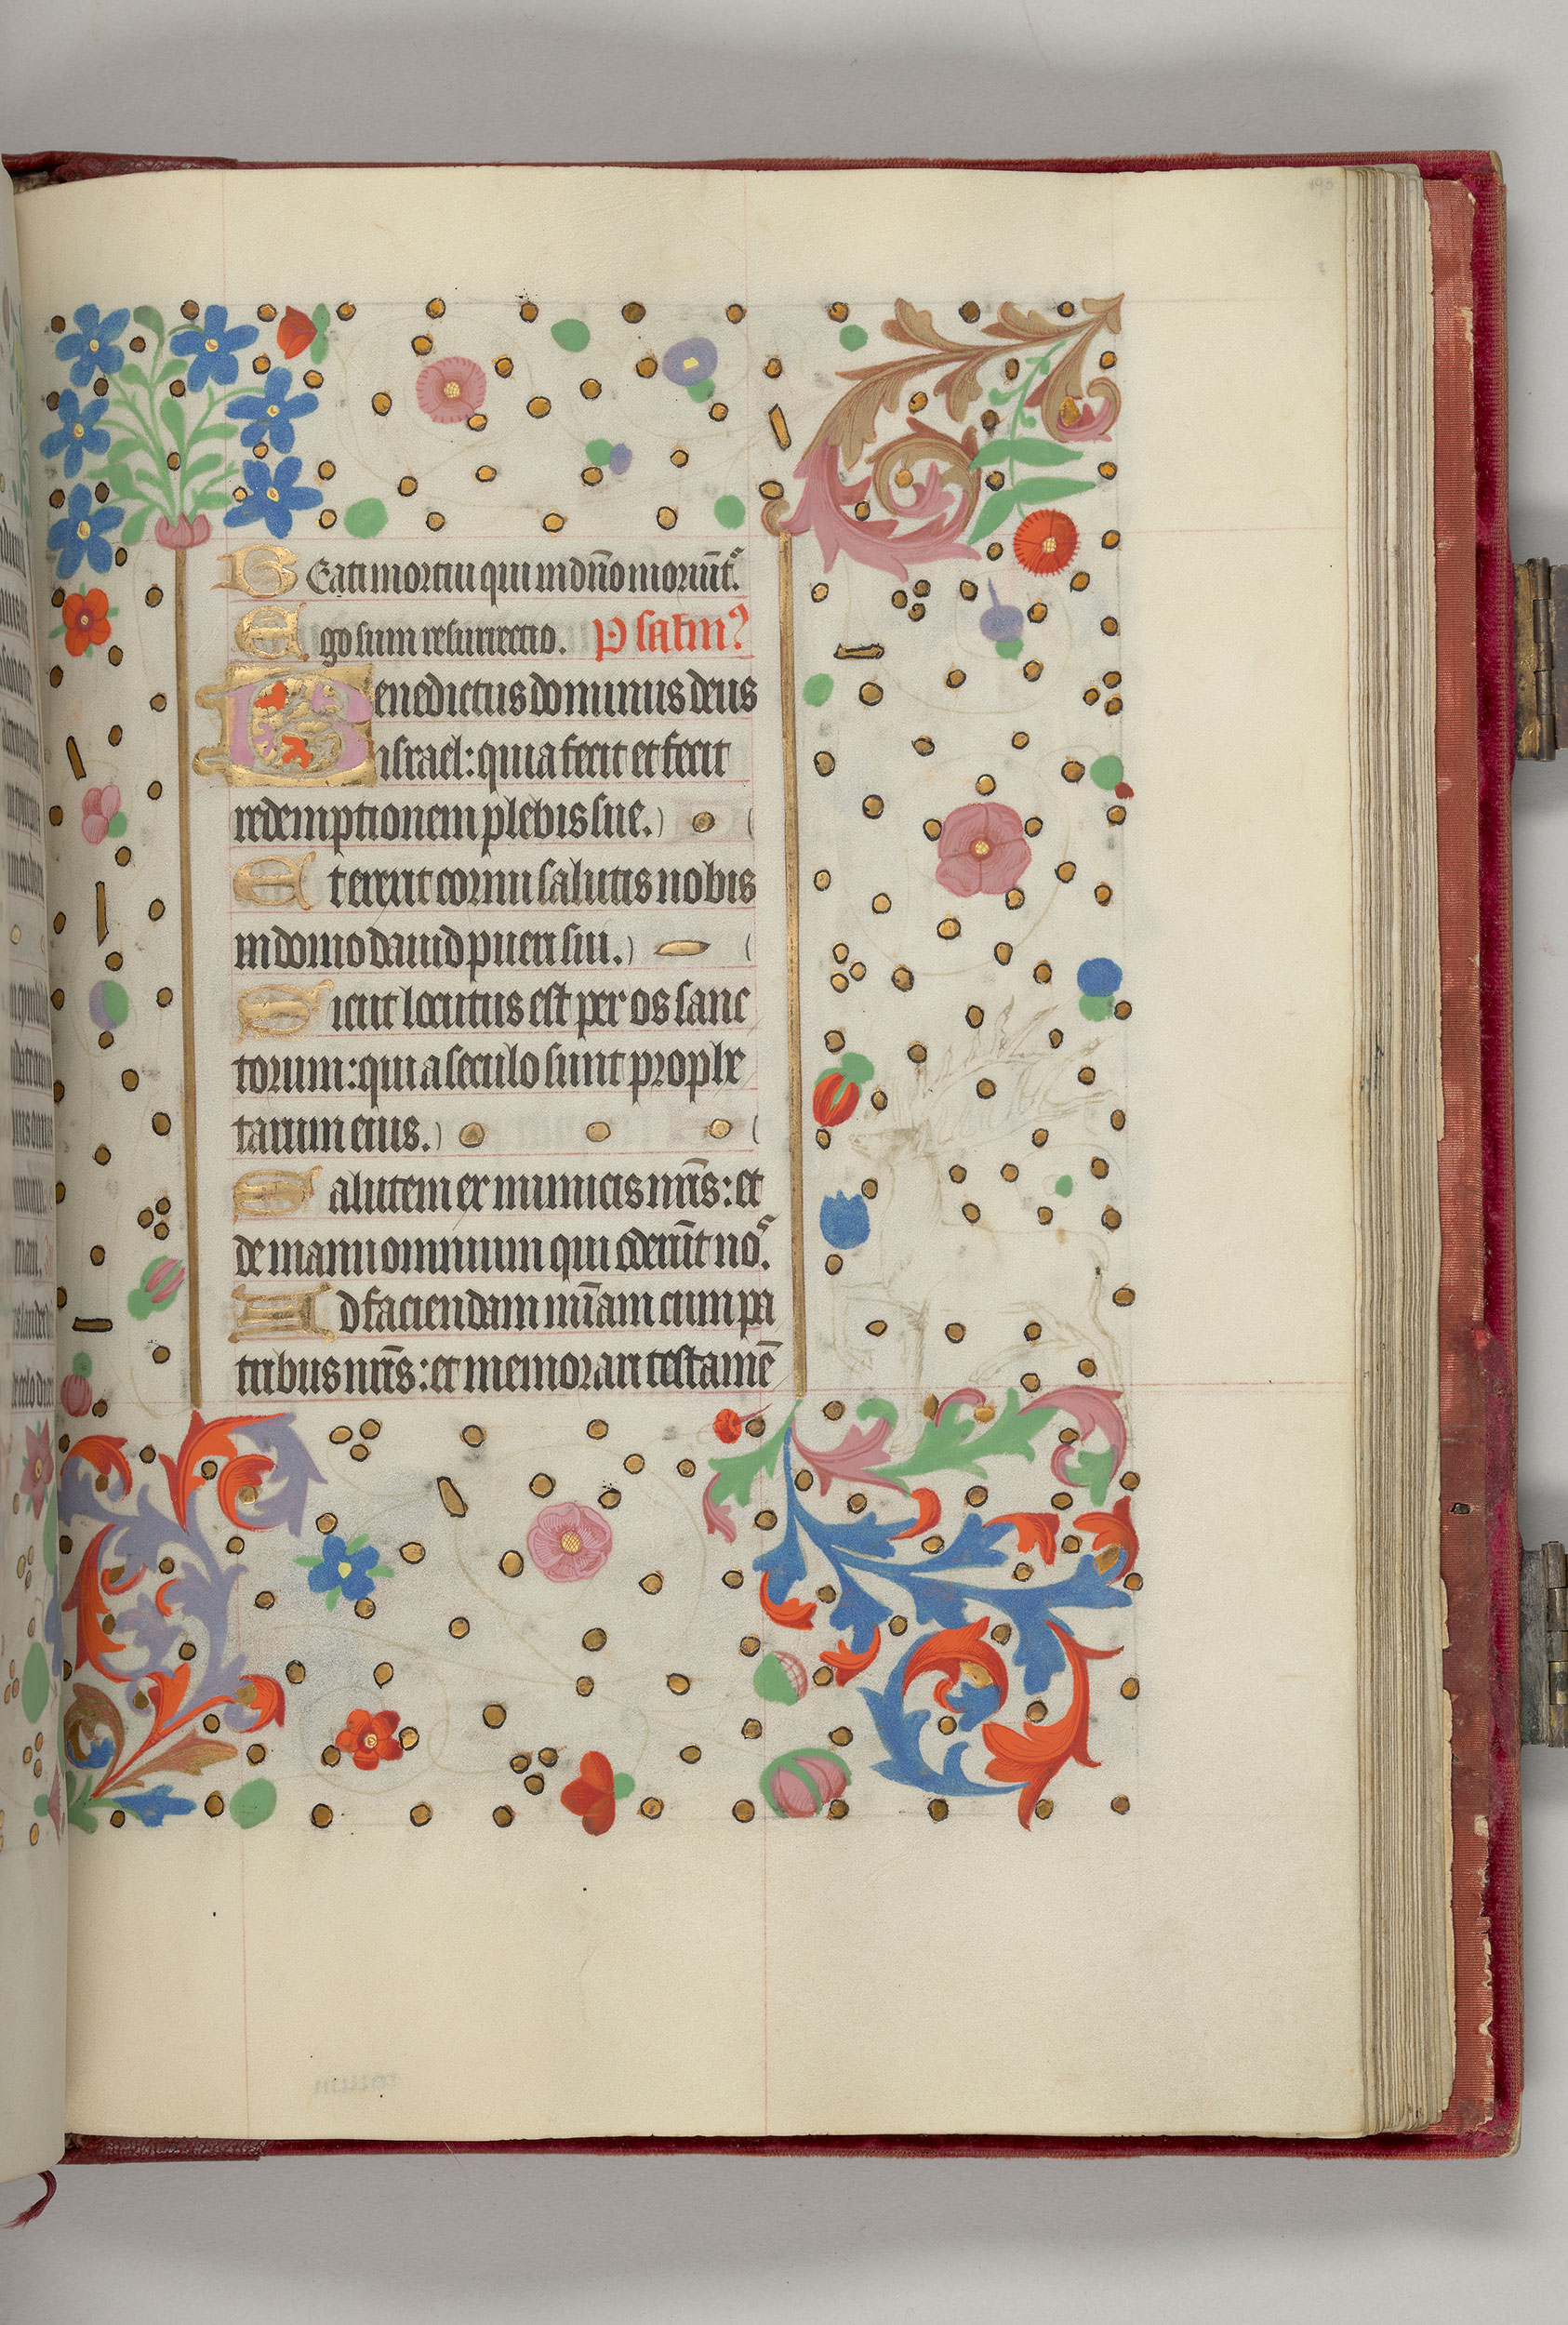 Beati mortui qui in dño moriũt̃.
Ego sum resurrectio. Psalm9
Benedictus dominus deus
israel: quia fecit et fecit
redemptionem plebis sue.
Et erexit cornu salutis nobis
in domo dauid pueri sui.
Sicut locutus est per os sanc
torum: qui a seculo sunt prophe
tarum eius.
Salutem ex inimicis nr̃is: et
de manu omnium qui oderũt nos.
Ad faciendam mĩam cum pa
tribus nr̃is: et memorari testamẽ